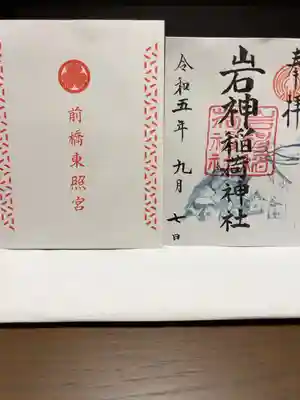 前橋東照宮
奉拝
岩神稲荷神社
令和五年 九月 七日